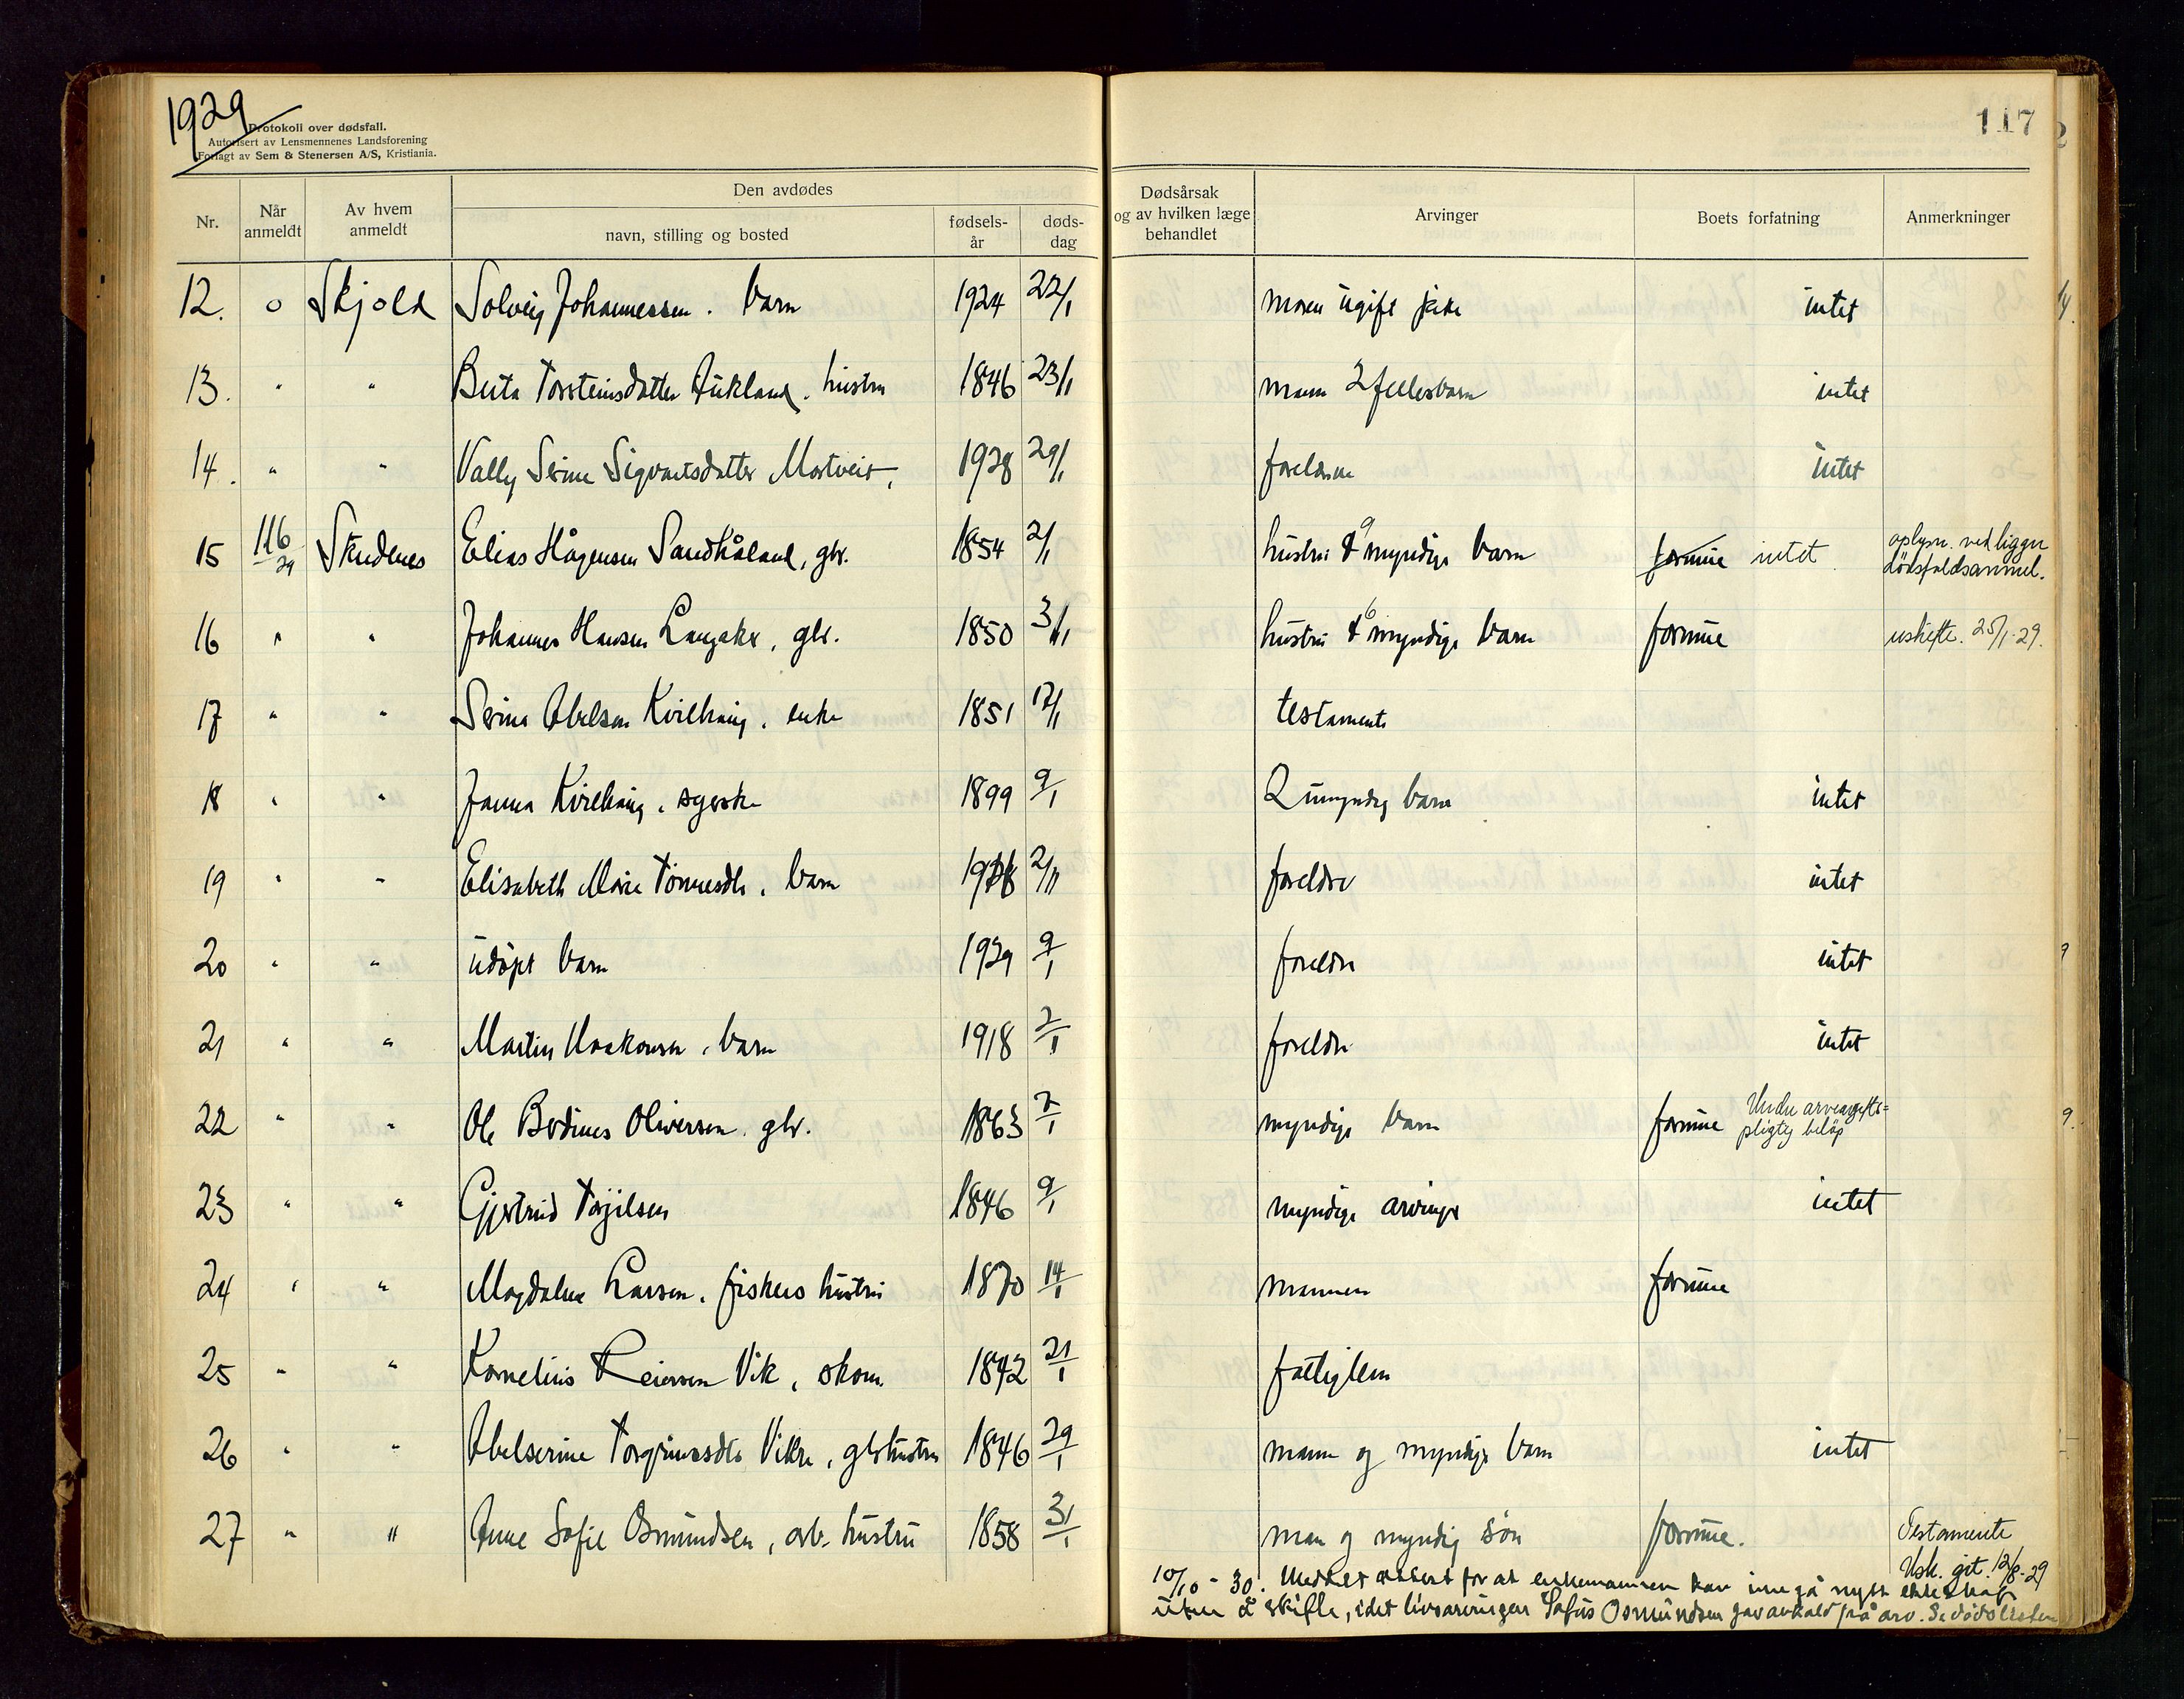 1929
Protokoll over dødsfall.
Autorisert av Lensmennenes Landsforening
Forlagt av Sem & Stenersen A/S, Kristiania.
117
Nr. Når anmeldt Av hvem anmeldt Den avdødes navn, stilling og bosted fødsels-år døds-dag Dødsårsak og av hvilken læge behandlet Arvinger Boets forfatning Anmerkninger
12. o Skjold Solveig Johannessen. barn 1924 22/1 moren ugift pike intet
13. " " Berta Torsteinsdatter Aukland. hustru 1846 23/1 mann 2 fellesbarn intet
14. " " Vally Serine Sigvartsdatter Mortveit, 1928 29/1 foreldrene intet
15 116/29 Skudenes Elias Hågensen Sandhåland, gbr. 1854 2/1 hustru & 9 myndige barn formue intet. oplysn. ved liggen dødsfaldsanmel.
16 " " Johannes Hansen Langaker, gbr. 1850 3/1 hustru & 6 myndige barn formue uskifte. 25/1-29.
17 " " Serina Abelsen Kvilhaug. enke 1851 17/1 testamente
18 " " Janna Kvilhaug. syerske 1899 9/1 2 umyndig barn intet
19 " " Elisabeth Marie Tønnesdtr. barn 1928 2/11 foreldre intet
20 " " udøpt barn 1929 9/1 foreldre intet
21 " " Martin Haakonsen. barn 1918 7/1 foreldre intet
22 " " Ole Bodinus Oliversen. gbr. 1863 7/1 myndige barn formue Under arveavgifts=pligtig beløp
23 " " Gjertrud Torjilsen 1846 9/1 myndige arvinger intet
24 " " Magdalena Larsen. fiskers hustru 1870 14/1 mannen formue
25 " " Kornelius Reiersen Vik, skom. 1842 21/1 fattiglem
26 " " Abelserine Torgrimsdtr Vikre, gbrhustru 1846 29/1 mann og myndige barn intet
27 " " Anne Sofie Osmundsen, arb. hustru 1858 31/1 man og myndig søn formue. Testamente Usk. git. 12/8-29
10/10-30. Meddelt attest for at enkemannen kan inngå nytt ekteskap
uten å skifte, idet livsarvingen Tofus Osmundsen gav avkald på arv. Se dødslisten